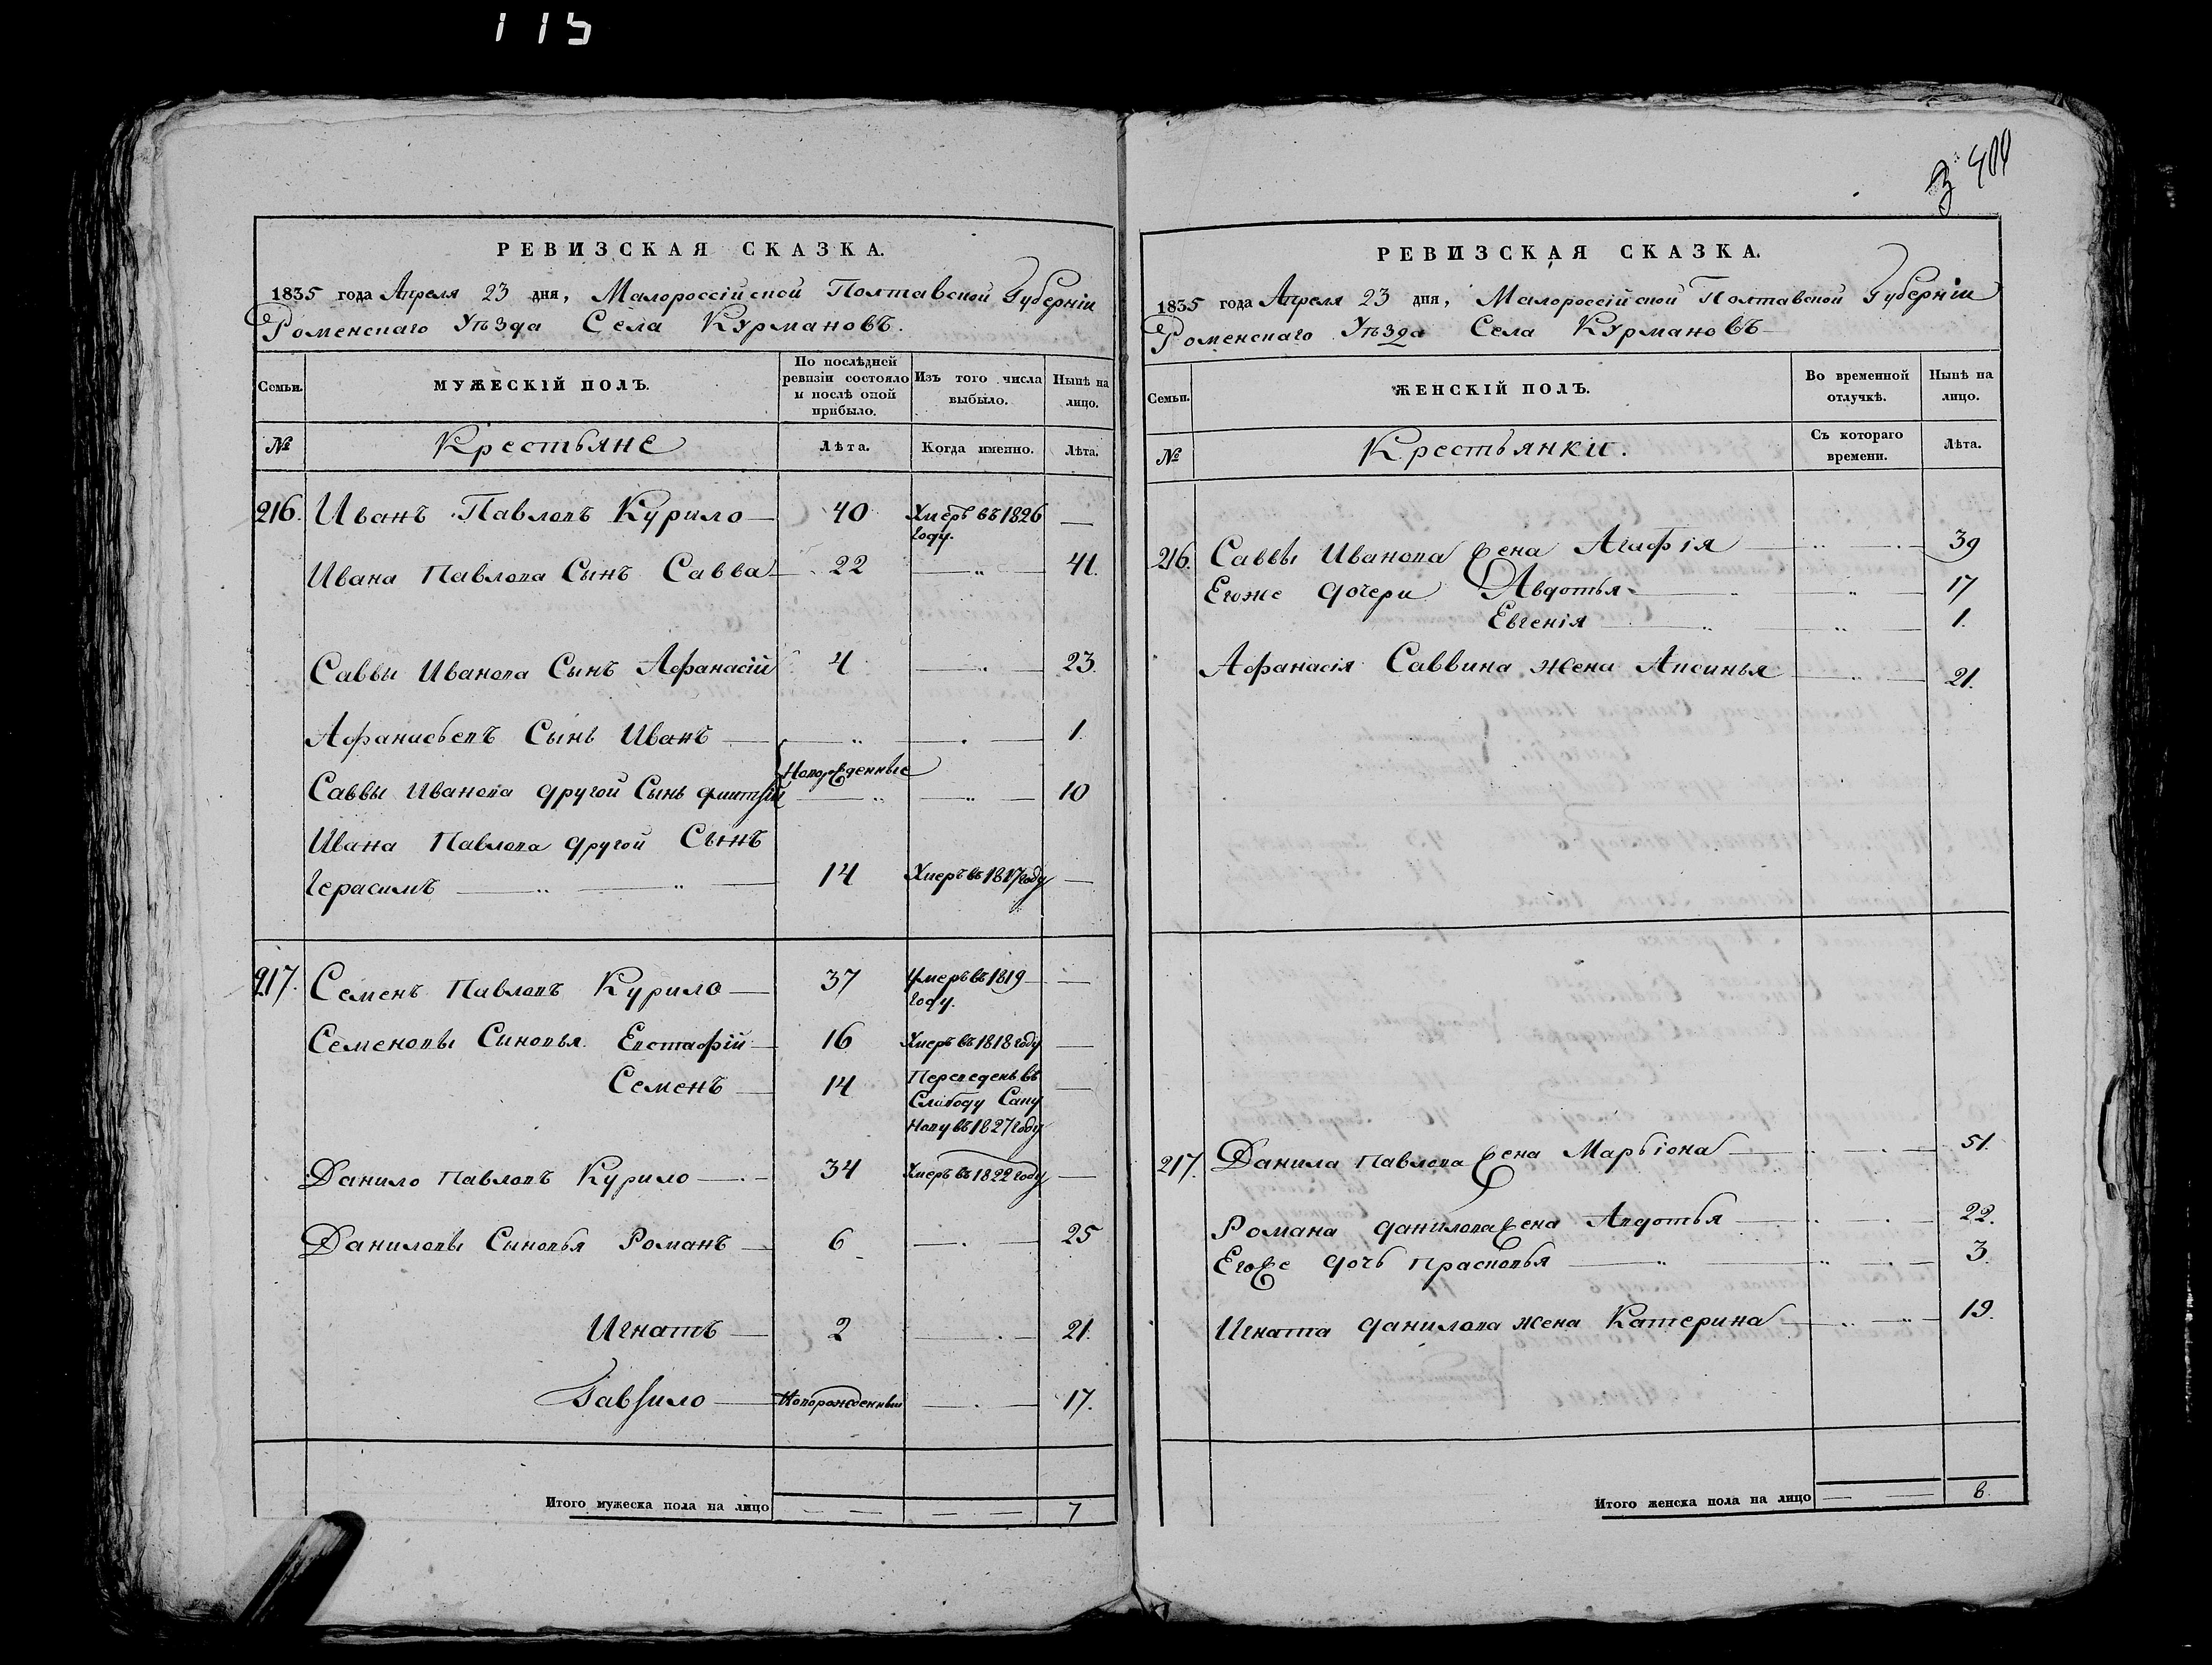 115
РЕВИЗСКАЯ СКАЗКА.
1835 года Апреля 23 дня, Малороссійской Полтавской Губерніи
Роменскаго Уѣзда Села Курмановъ.
Семьи.
МУЖЕСКІЙ ПОЛЪ.
По послѣдней
ревизіи состояло
и послѣ оной
прибыло.
Изъ того числа
выбыло.
Нынѣ на
лицо.
№
Крестьяне
Лѣта.
Когда именно.
Лѣта.
216. Иванъ Павловъ Курило — 40 Умеръ въ 1826 —
году.
Ивана Павлова Сынъ Савва — 22 — 41.
Саввы Иванова Сынъ Афанасій 4 — 23.
Афанасьевъ Сынъ Иванъ — 1
Новорожденные
Саввы Иванова другой Сынъ — 10
Ивана Павлова другой Сынъ
Герасимъ — 14 Умеръ въ 1817 году —
217. Семенъ Павловъ Курило — 37 Умеръ въ 1819 —
году.
Семеновы Сыновья Евстафій — 16 Умеръ въ 1818 году —
Семенъ — 14 Переведенъ въ —
Слободу Сапу
нову въ 1827 году
Данило Павловъ Курило — 34 Умеръ въ 1822 году —
Даниловы Сыновья Романъ — 6 — 25
Игнатъ — 2 — 21.
Гаврило — Новорожденный — 17.
Итого мужеска пола на лицо — — 7
РЕВИЗСКАЯ СКАЗКА.
1835 года Апреля 23 дня, Малороссійской Полтавской Губерніи
Роменскаго Уѣзда Села Курмановъ
Семьи.
ЖЕНСКІЙ ПОЛЪ.
Во временной
отлучкѣ.
Нынѣ на
лицо.
№
Крестьянки.
Съ котораго
времени.
Лѣта.
216. Саввы Иванова жена Агафія — 39
Егоже дочери Авдотья — 17
Евгенія — 1.
Афанасія Саввина жена Аксинья — 21.
217. Данила Павлова жена Марьіона — 51.
Романа Данилова жена Авдотья — 22.
Егоже дочь Прасковья — 3.
Игната Данилова жена Катерина — 19.
Итого женска пола на лицо — — 8.